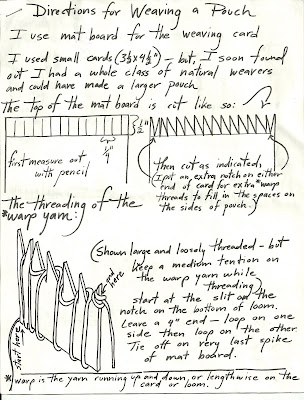 Directions for Weaving a Pouch
I use mat board for the weaving card
I used small cards (3½ x 4½") - but, I soon found
out I had a whole class of natural weavers
and could have made a larger pouch
The top of the mat board is cut like so:
½"
¼"
first measure out
with pencil
then cut as indicated,
I put an extra notch on either
end of card for extra *warp
threads to fill in the spaces on
the sides of pouch.
The threading of the
*warp yarn:
(Shown large and loosely threaded - but
keep a medium tention on
the warp yarn while
threading)
start at the slit on the
notch on the bottom of loom.
Leave a 4" end - loop on one
side then loop on the other.
Tie off on very last spike
of mat board.
start here
end here
* warp is the yarn running up and down, or lengthwise on the
card or loom.